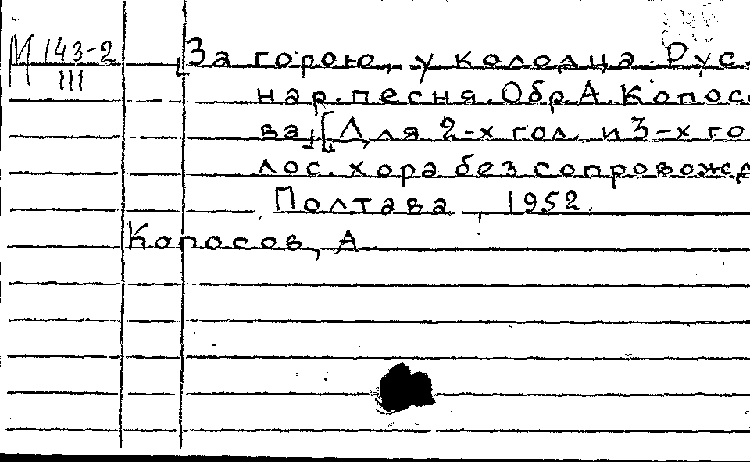 М 143-2
III
За горою, у колодца. Рус.
нар. песня. Обр. А. Копосо
ва. [Для 2-х гол. и 3-х го
лос. хора без сопровожд
Полтава, 1952.
Копосов, А.